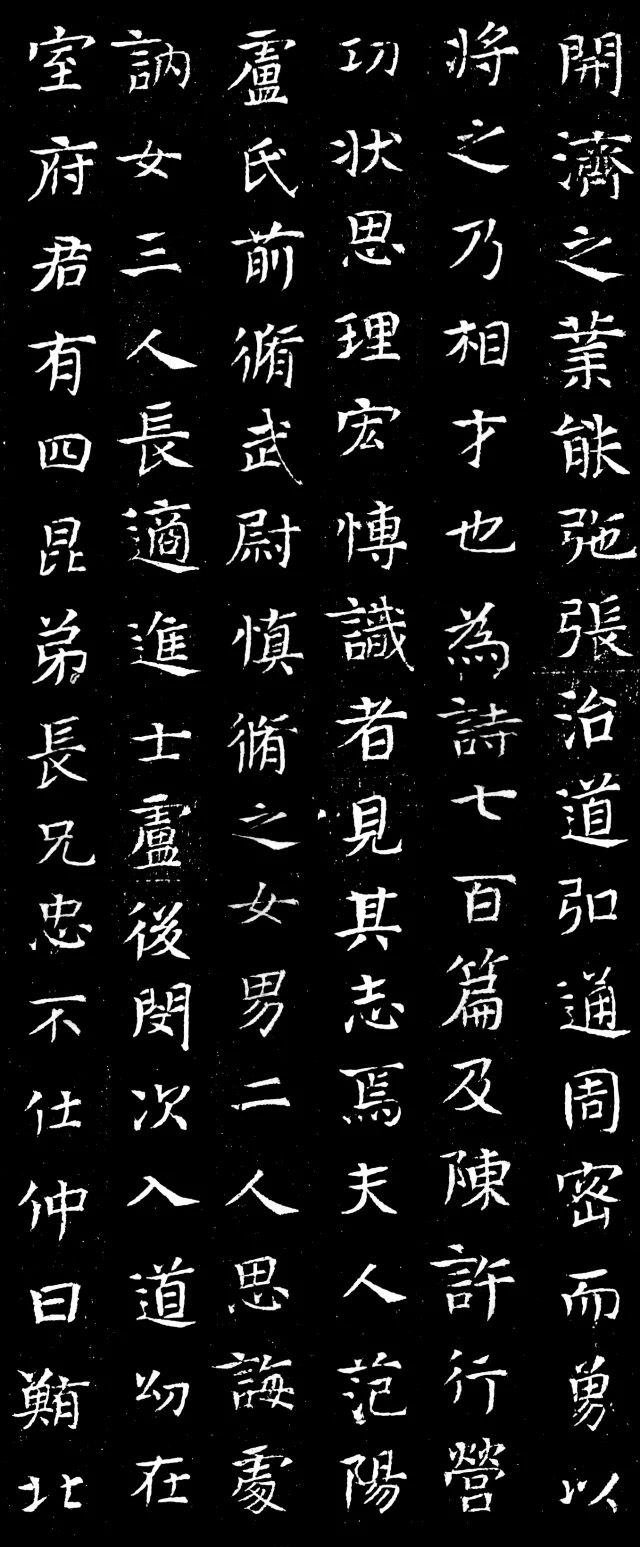 開濟之業能弛張治道弘通周密而勇以
将之乃相才也為詩七百篇及陳許行營
功狀思理宏愽識者見其志焉夫人范陽
盧氏前脩武尉慎脩之女男二人思誨處
訥女三人長適進士盧後閔次入道幼在
室府君有四昆弟長兄忠不仕仲曰鄸北